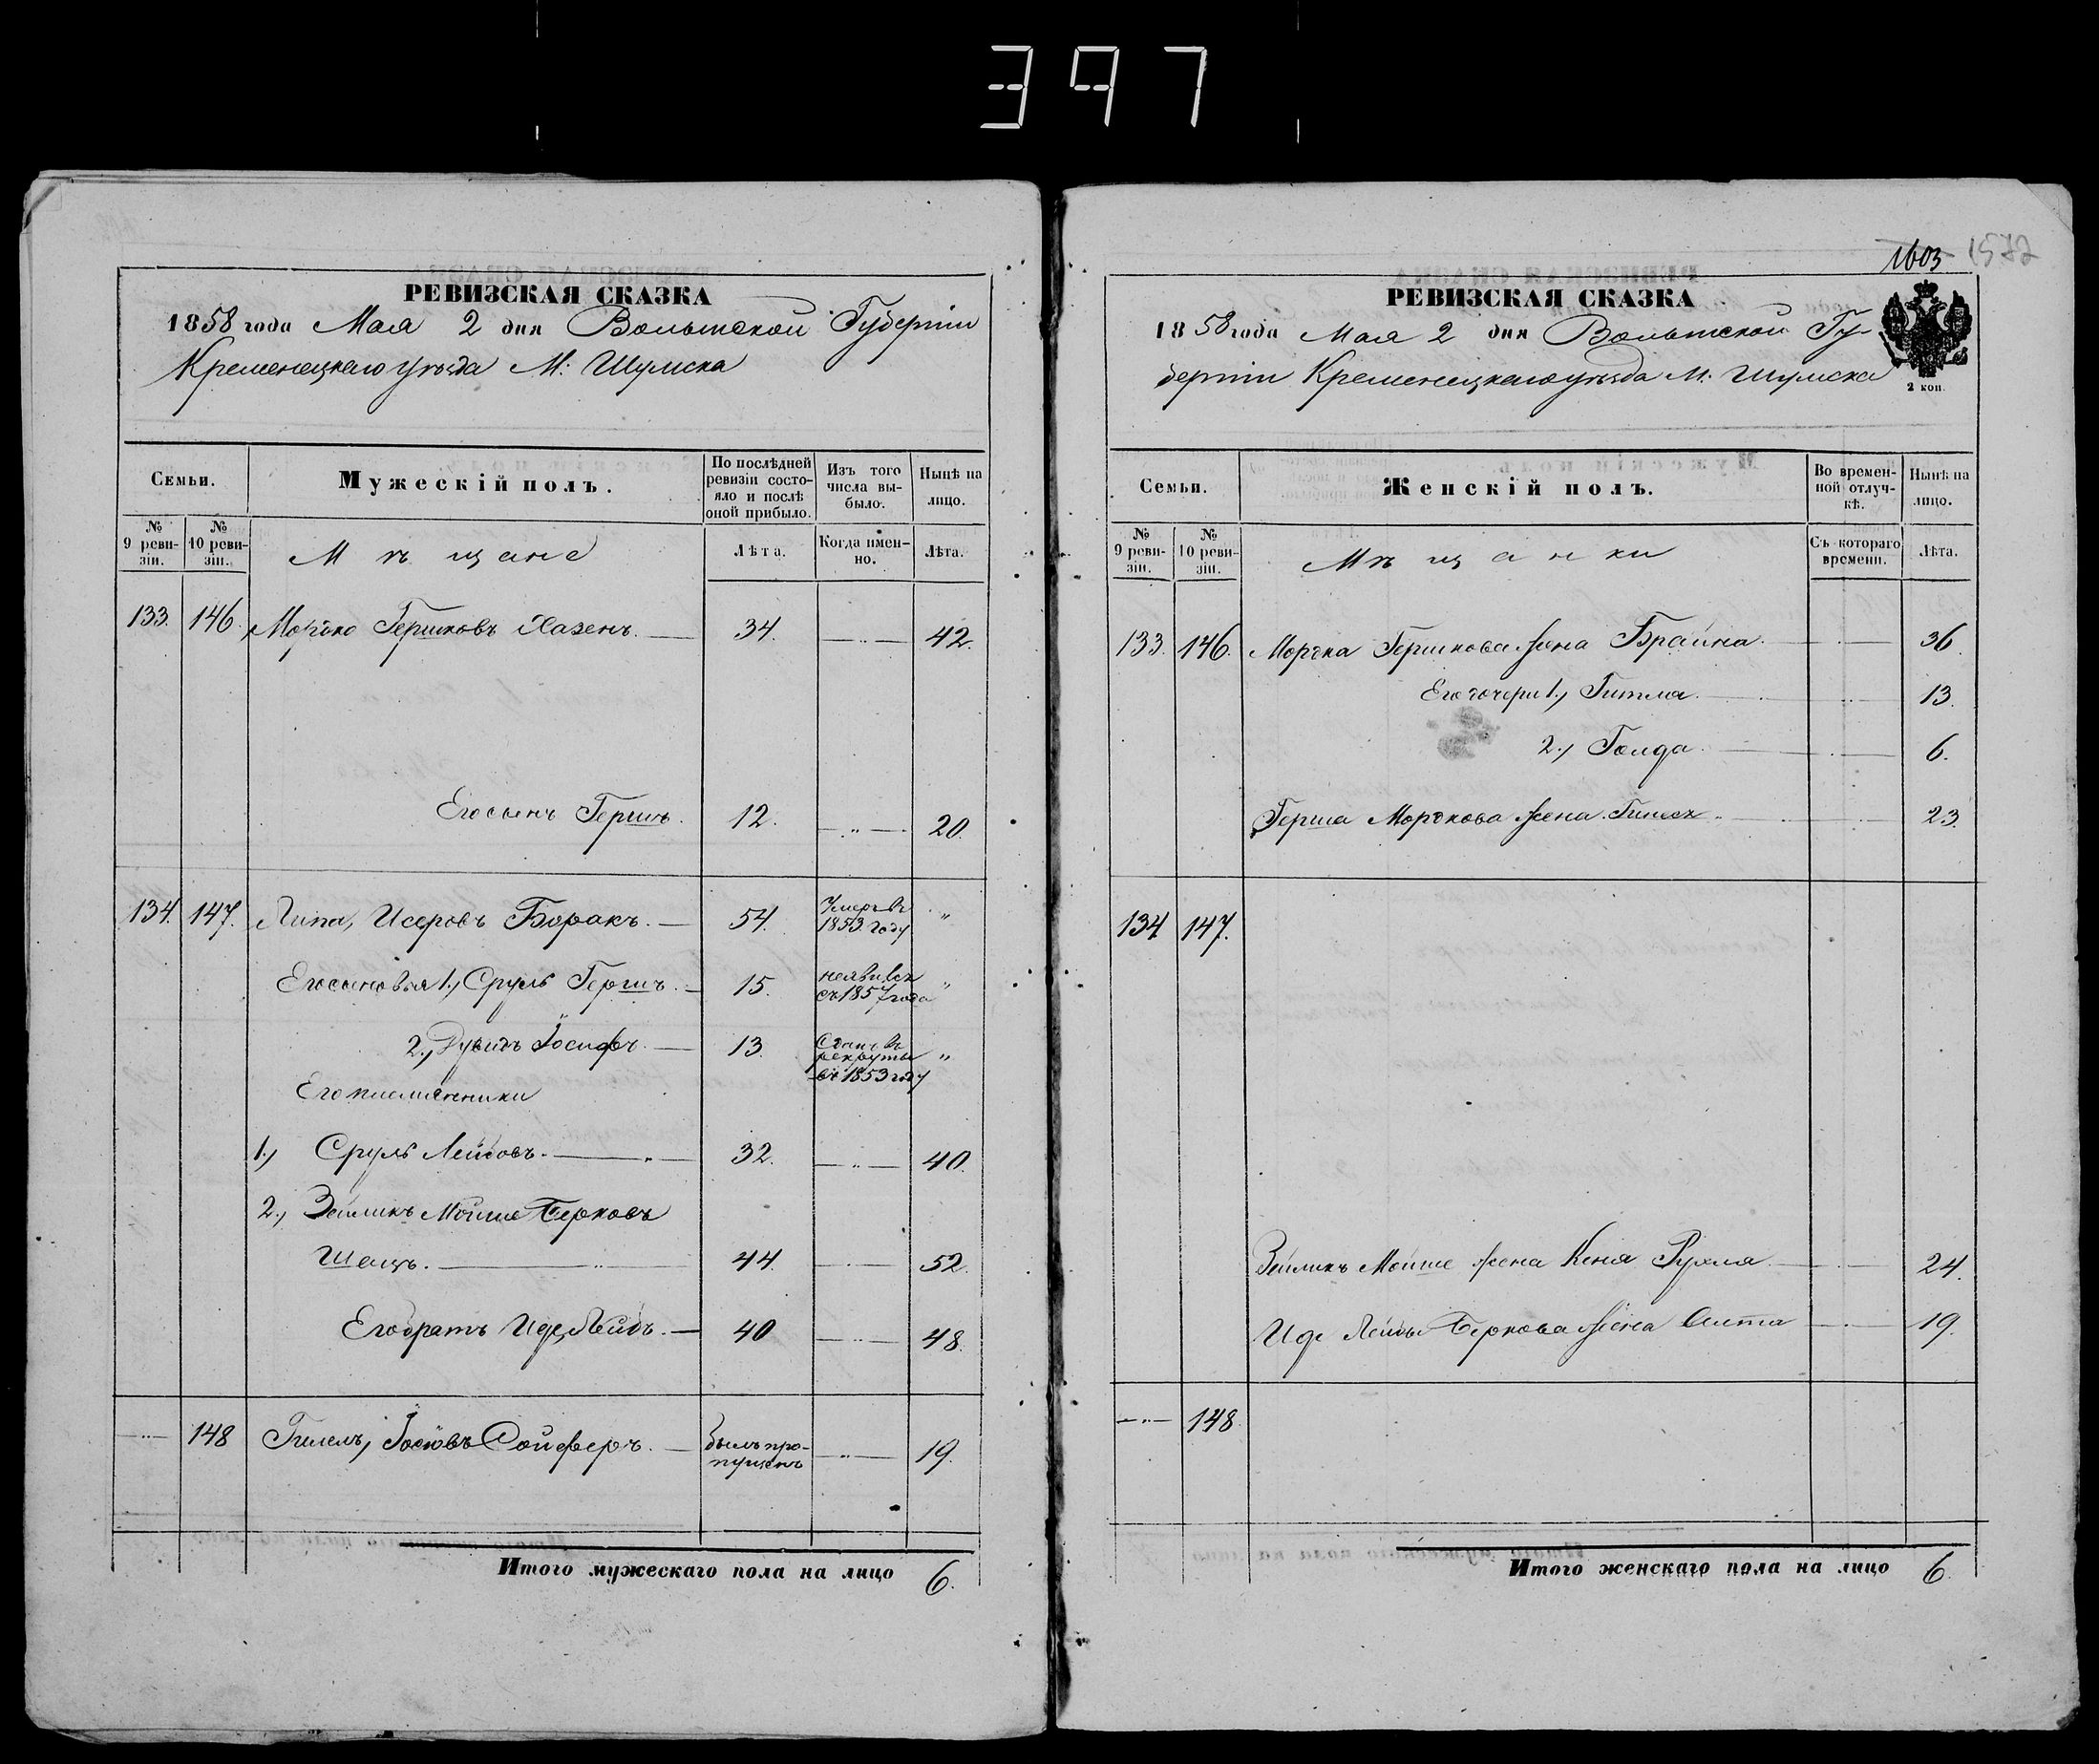 397
РЕВИЗСКАЯ СКАЗКА
1858 года Мая 2 дня Волынской Губернiи
Кременецкаго уѣзда М: Шумска
Семьи.
Мужескiй полъ.
По послѣдней ревизiи состояло и послѣ оной прибыло.
Изъ того числа выбыло.
Нынѣ на лицо.
№ 9 ревизiи.
№ 10 ревизiи.
Мѣщане
Лѣта.
Когда именно.
Лѣта.
133. 146. Моръко Гершковъ Хазенъ. 34. 42.
Его сынъ Гершъ. 12. 20.
134. 147. Липа, Исеровъ Боракъ. 54. Умеръ въ 1853 году "
Его сыновья 1., Сруль Гершъ. 15. неявился съ 1857 года "
2., Дувидъ Iосифъ. 13. Сданъ въ рекруты въ 1853 году "
Его племянники
1., Сруль Лейбовъ. 32. 40.
2., Зейликъ Мойше Берковъ
Шецъ. 44. 52.
Его братъ Иде, Лейбъ. 40 48.
148 Гилелъ, Iосiовъ Сойферъ. былъ пропущенъ 19.
Итого мужескаго пола на лицо 6.
1603 1572
РЕВИЗСКАЯ СКАЗКА
1858 года Мая 2 дня Волынской Гу-
бернiи Кременецкаго уѣзда М. Шумска
2 коп.
Семьи.
Женскiй полъ.
Во временной отлучкѣ.
Нынѣ на лицо.
№ 9 ревизiи.
№ 10 ревизiи.
Мѣщанки
Съ котораго времени.
Лѣта.
133. 146. Моръка Гершкова жена Брайна. 36.
Его дочери 1., Гитля. 13.
2., Голда. 6.
Герша Моръкова жена 23.
134 147.
Зейликъ Мойше жена Кеня Рухля 24.
Иде Лейбы Беркова жена Алта 19.
148.
Итого женскаго пола на лицо 6